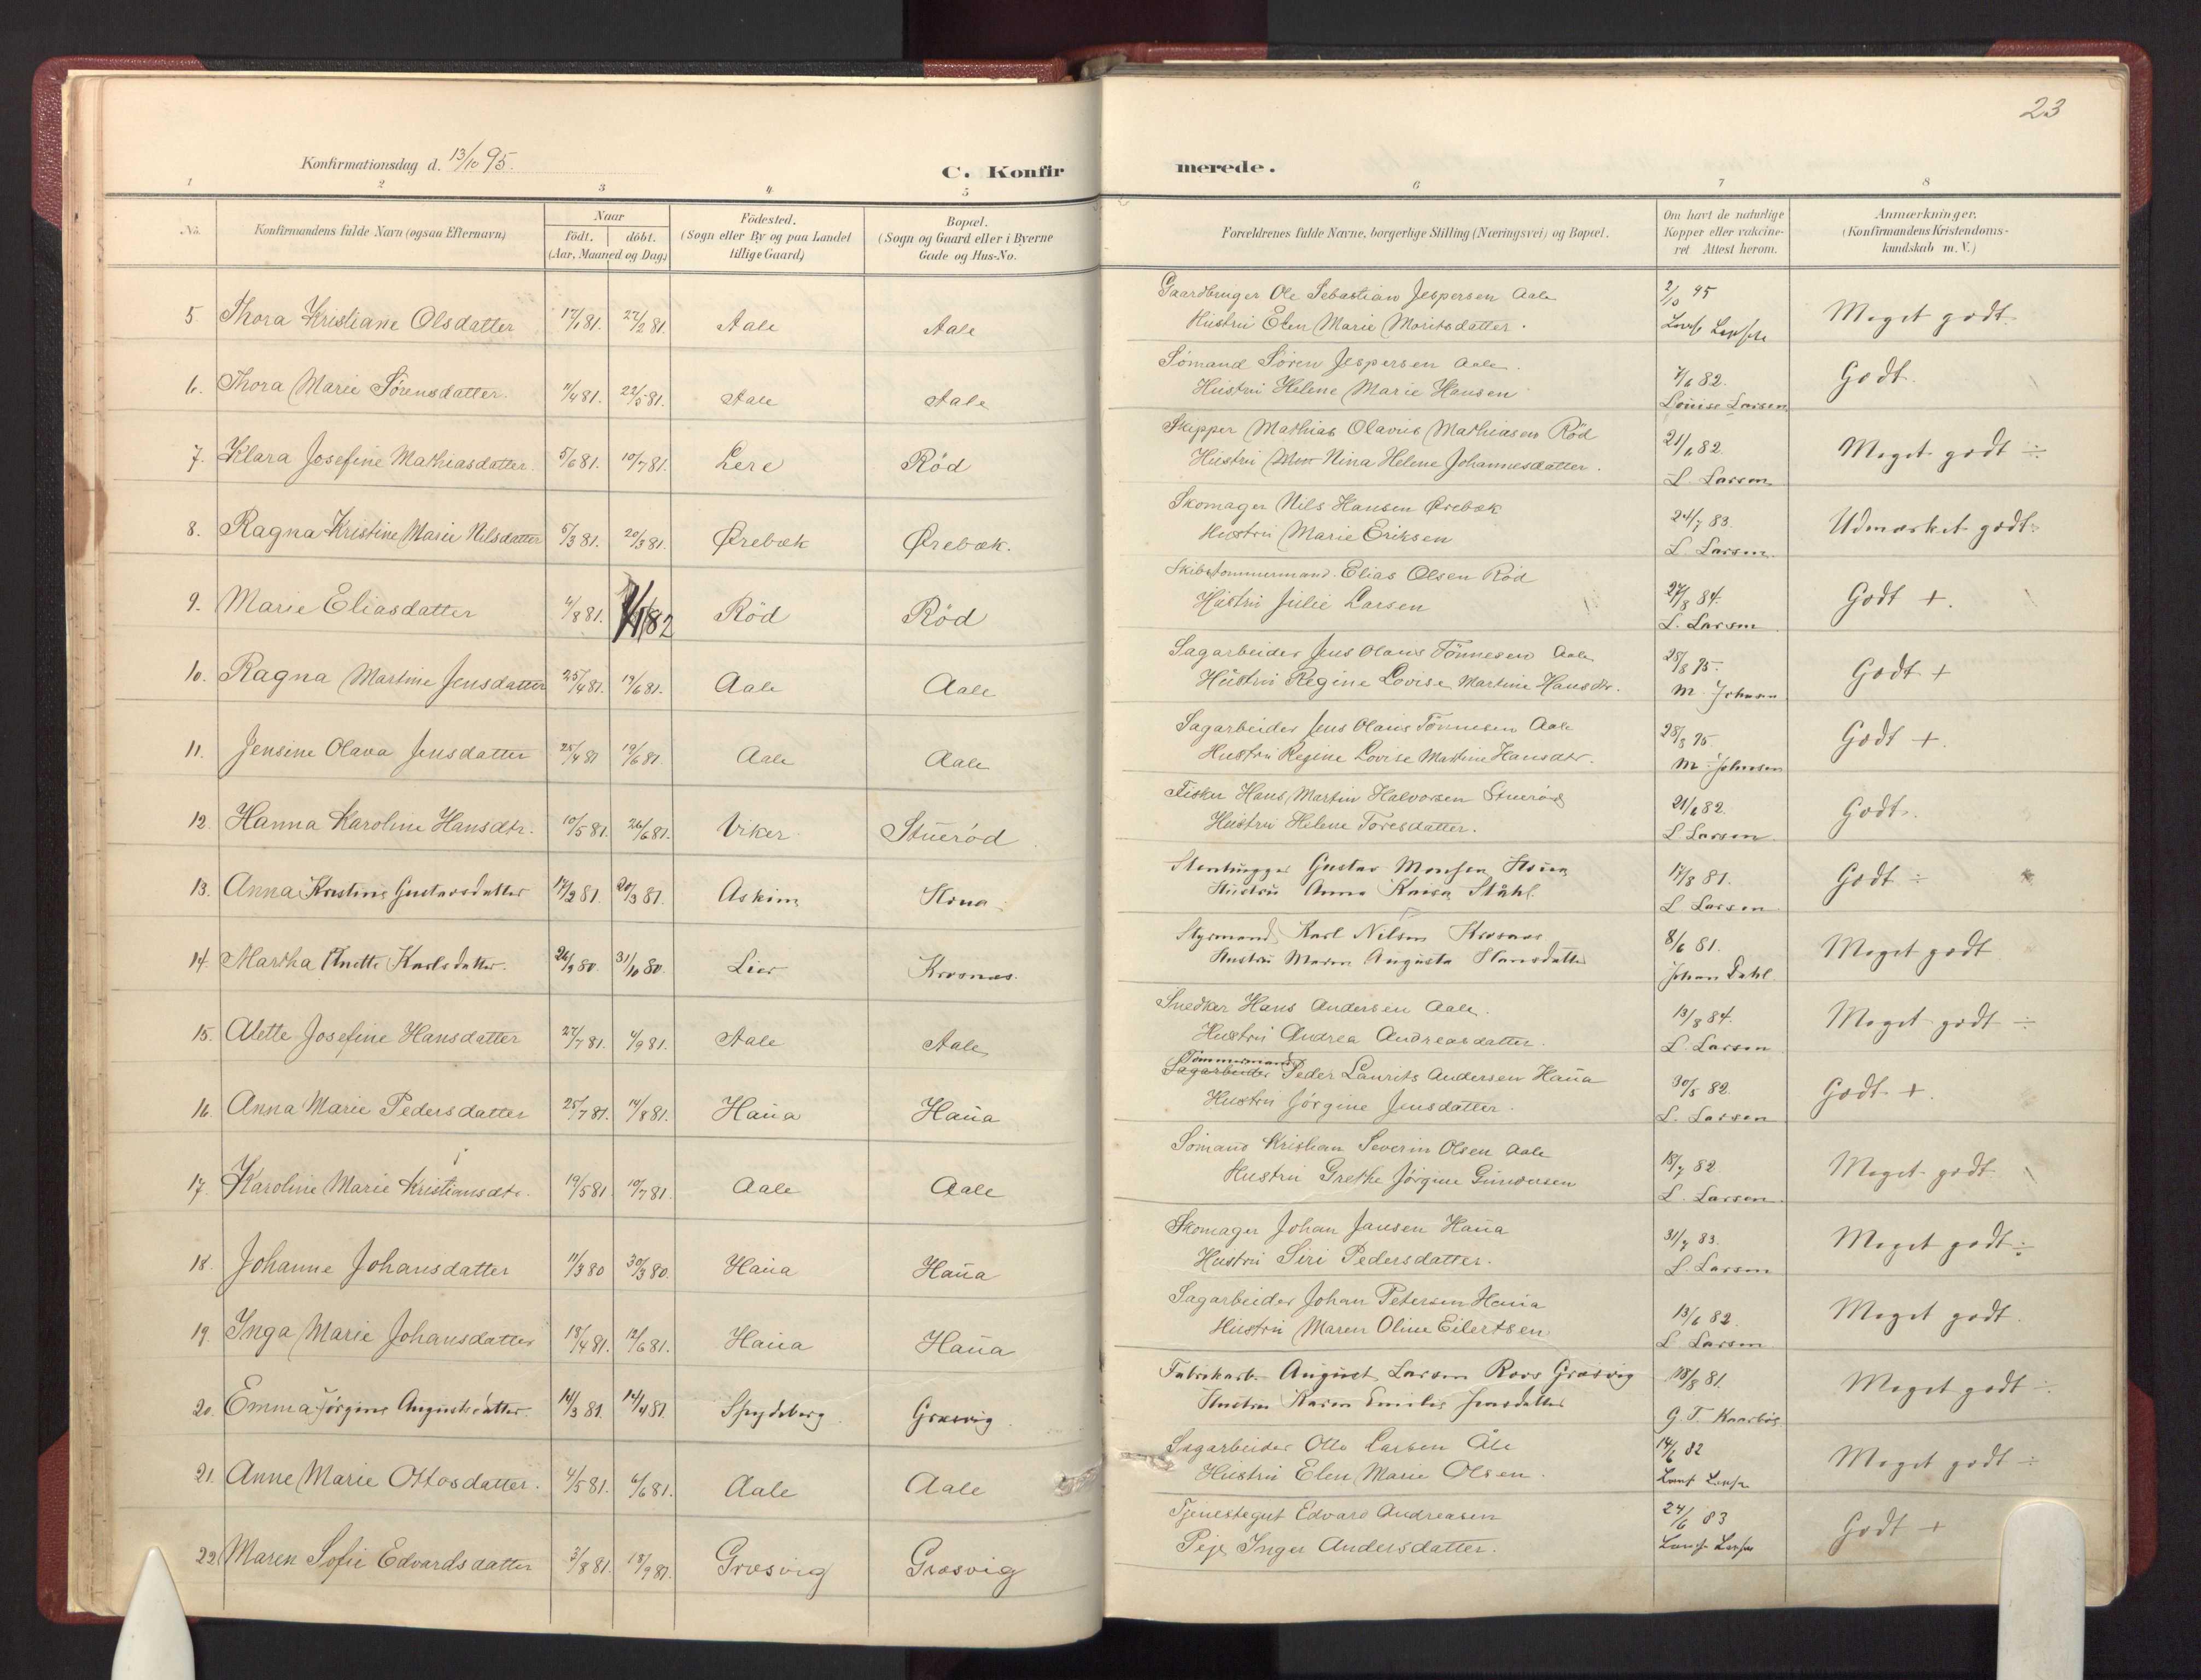 23
Konfirmationsdag d. 13/10 95.
C. Konfirmerede.
1 2 3 4 5 6 7 8
No.
Konfirmandens fulde Navn (ogsaa Efternavn)
Naar
födt. döbt.
(Aar, Maaned og Dag)
Födested.
(Sogn eller By og paa Landet
tillige Gaard)
Bopæl.
(Sogn og Gaard eller i Byerne
Gade og Hus-No.
Forældrenes fulde Navne, borgerlige Stilling (Næringsvei) og Bopæl.
Om havt de naturlige
Kopper eller vakcine-
ret Attest herom.
Anmærkninger.
(Konfirmandens Kristendoms-
kundskab m. V.)
5 Thora Kristiane Olsdatter 17/1 81. 27/2 81. Aale Aale
Gaardbruger Ole Sebastian Jespersen Aale
Hustru Elen Marie Moritsdatter.
2/10 95
Meget godt.
6. Thora Marie Sørensdatter. 11/4 81. 22/5 81. Aale Aale
Sømand Søren Jespersen Aale.
Hustru Helene Marie Hansen
7/6 82.
Louise Larsen
Godt.
7. Klara Josefine Mathiasdatter. 5/6 81. 10/7 81. Lere Rød
Skipper Mathias Olavus Mathiasen Rød
Hustru Nina Helene Johannesdatter.
21/6 82
L. Larsen
Meget godt ÷
8. Ragna Kristine Marie Nilsdatter 5/3 81. 20/3 81. Ørebæk Ørebæk.
Skomager Nils Hansen Ørebæk
Hustru Marie Eriksen
24/7 83.
L. Larsen.
Udmærket godt.
9. Marie Eliasdatter 4/8 81. 1/1 82 Rød Rød
Skibstømmermand Elias Olsen Rød
Hustru Julie Larsen
27/8 84.
L. Larsen
Godt +.
10. Ragna Martine Jensdatter 25/4 81. 19/6 81. Aale Aale
Sagarbeider Jens Olaus Tönnesen Aale
Hustru Regine Lovise Martine Hansdtr.
28/8 95.
M. Johnsen
Godt +
11. Jensine Olava Jensdatter 25/4 81 19/6 81. Aale Aale
Sagarbeider Jens Olaus Tönnesen Aale
Hustru Regine Lovise Martine Hansdtr.
28/8 95.
M. Johnsen
Godt +.
12. Hanna Karoline Hansdtr. 10/5 81. 26/6 81. Viker Stuerød
Fisker Hans Martin Halvorsen Stuerød
Hustru Helene Toresdatter.
21/6 82.
L. Larsen
Godt.
13. Anna Kristine Gustavsdatter 17/2 81. 20/3 81. Askim
Stenhugger Gustav Monsen
Hustru Anna Kaisa Ståhl.
17/8 81.
L. Larsen
Godt ÷
14. Martha Anette Karlsdatter. 26/9 80. 31/10 80. Lier Krosnæs.
Styrmand Karl Nilsen Krosnæs
Hustru Maren Augusta Hansdatter
8/6 81.
Johan Dahl
Meget godt
15. Alette Josefine Hansdatter 27/7 81. 4/9 81. Aale Aale
Snedker Hans Andersen Aale.
Hustru Andrea Andreasdatter.
13/8 84.
L. Larsen
Meget godt ÷
16. Anna Marie Pedersdatter 25/7 81. 14/8 81. Haua Haua
Tømmermand
Sagarbeider Peder Laurits Andersen Haua
Hustru Jørgine Jensdatter.
30/5 82.
L. Larsen
Godt +.
17. Karoline Marie Kristiansdtr. 19/5 81. 10/7 81. Aale Aale
Sømand Kristian Severin Olsen Aale
Hustru Grethe Jørgine Gundersen
18/7 82.
L. Larsen
Meget godt
18. Johanne Johansdatter 11/3 80 30/3 80. Haua Haua
Skomager Johan Jansen Haua
Hustru Siri Pedersdatter.
31/7 83.
L. Larsen
Meget godt ÷
19. Inga Marie Johansdatter 18/4 81. 12/6 81. Haua Haua
Sagarbeider Johan Petersen Haua
Hustru Maren Oline Eilertsen
13/6 82.
L. Larsen
Meget godt.
20. Emma Jørgine Augustsdatter. 14/3 81. 14/4 81. Spydeberg Græsvig.
Fabrikarb. August Larsen Roos Græsvig
Hustru Karen Emilie Jensdatter
18/8 81.
G. T. Kaarbøe.
Meget godt ÷
21. Anne Marie Ottosdatter. 4/5 81. 6/6 81. Aale Aale
Sagarbeider Otto Larsen Åle
Hustru Elen Marie Olsen.
14/6 82
Meget godt ÷
22. Maren Sofie Edvardsdatter 3/8 81. 18/9 81. Græsvig Græsvig
Tjenestegut Edvard Andreasen
Pige Inger Andersdatter.
24/6 83
Godt +